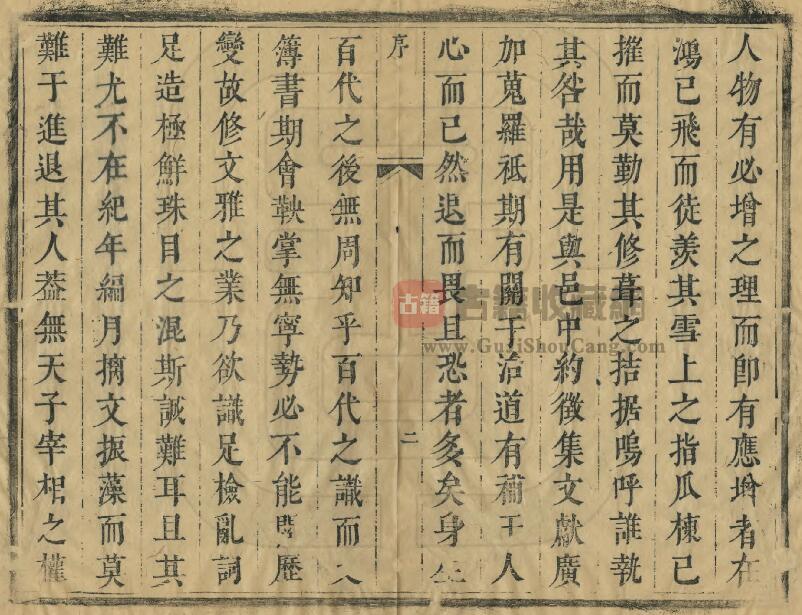 人物有必增之理而卽有應增者在
鴻已飛而徒羨其雪上之指瓜棟已
摧而莫勤其修葺之拮据嗚呼誰執
其咎哉用是與邑中約徵集文獻廣
加蒐羅祇期有關于治道有補于人
心而已然退而畏且恐者多矣身
序
二
百代之後無周知乎百代之識而
簿書期會鞅掌無寧勢必不能歷
變故修文雅之業乃欲識足檢亂詞
足造極鮮珠目之混斯誠難耳且其
難尤不在紀年編月摛文振藻而莫
難于進退其人葢無天子宰相之權
古籍
古籍收藏網
www.GujiShouCang.com